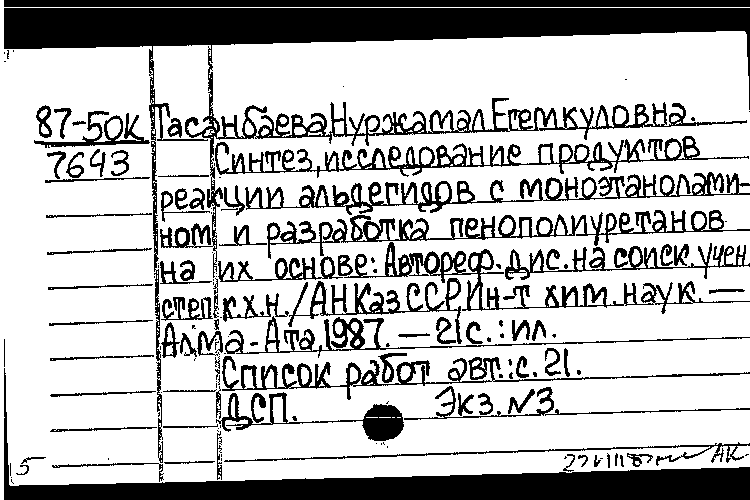 87-50к Тасанбаева, Нуржамал Егемкуловна.
7643 Синтез, исследование продуктов
реакции альдегидов с моноэтанолами-
ном и разработка пенополиуретанов
на их основе: Автореф. дис. на соиск. учен.
степ к.х.н. / АН КазССР, Ин-т хим. наук. —
Алма-Ата, 1987. — 21с. : ил.
Список работ авт.: с. 21.
ДСП. Экз. N3.
5 АК